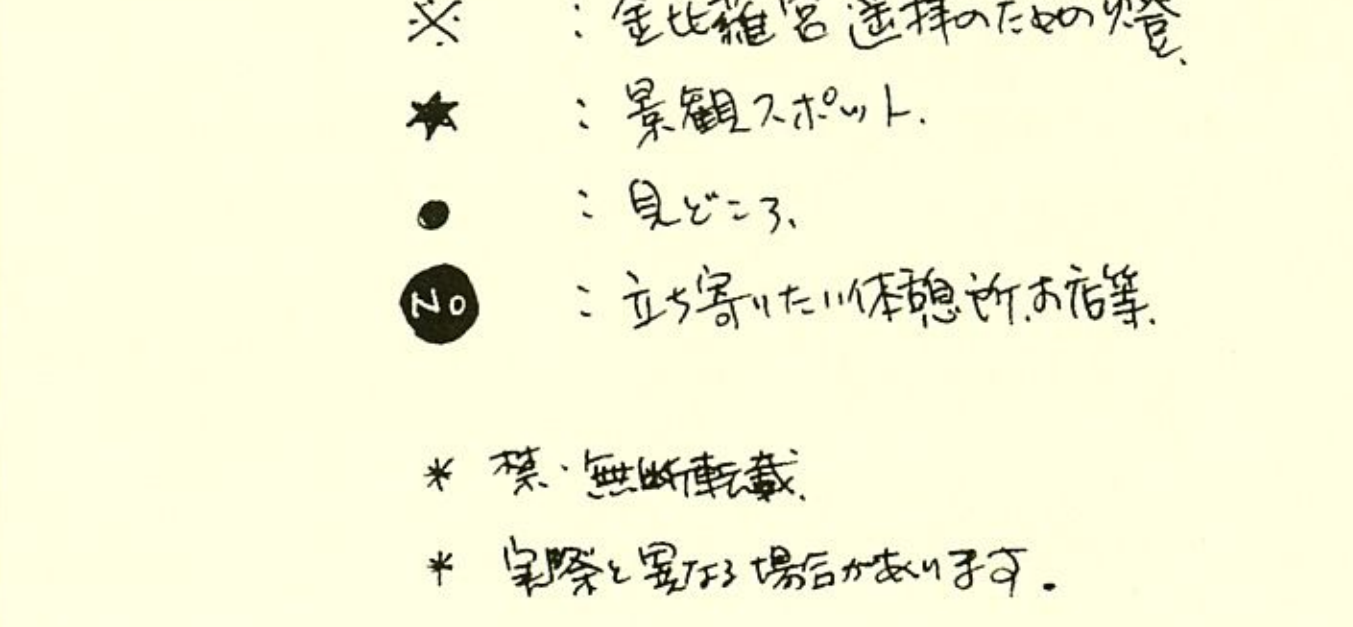 ※ : 金比羅宮遥拝のための燈、
★ : 景観スポット.
● : 見どころ、
No : 立ち寄りたい休憩所.お店等.
* 禁・無断転載.
* 実際と異なる場合があります.